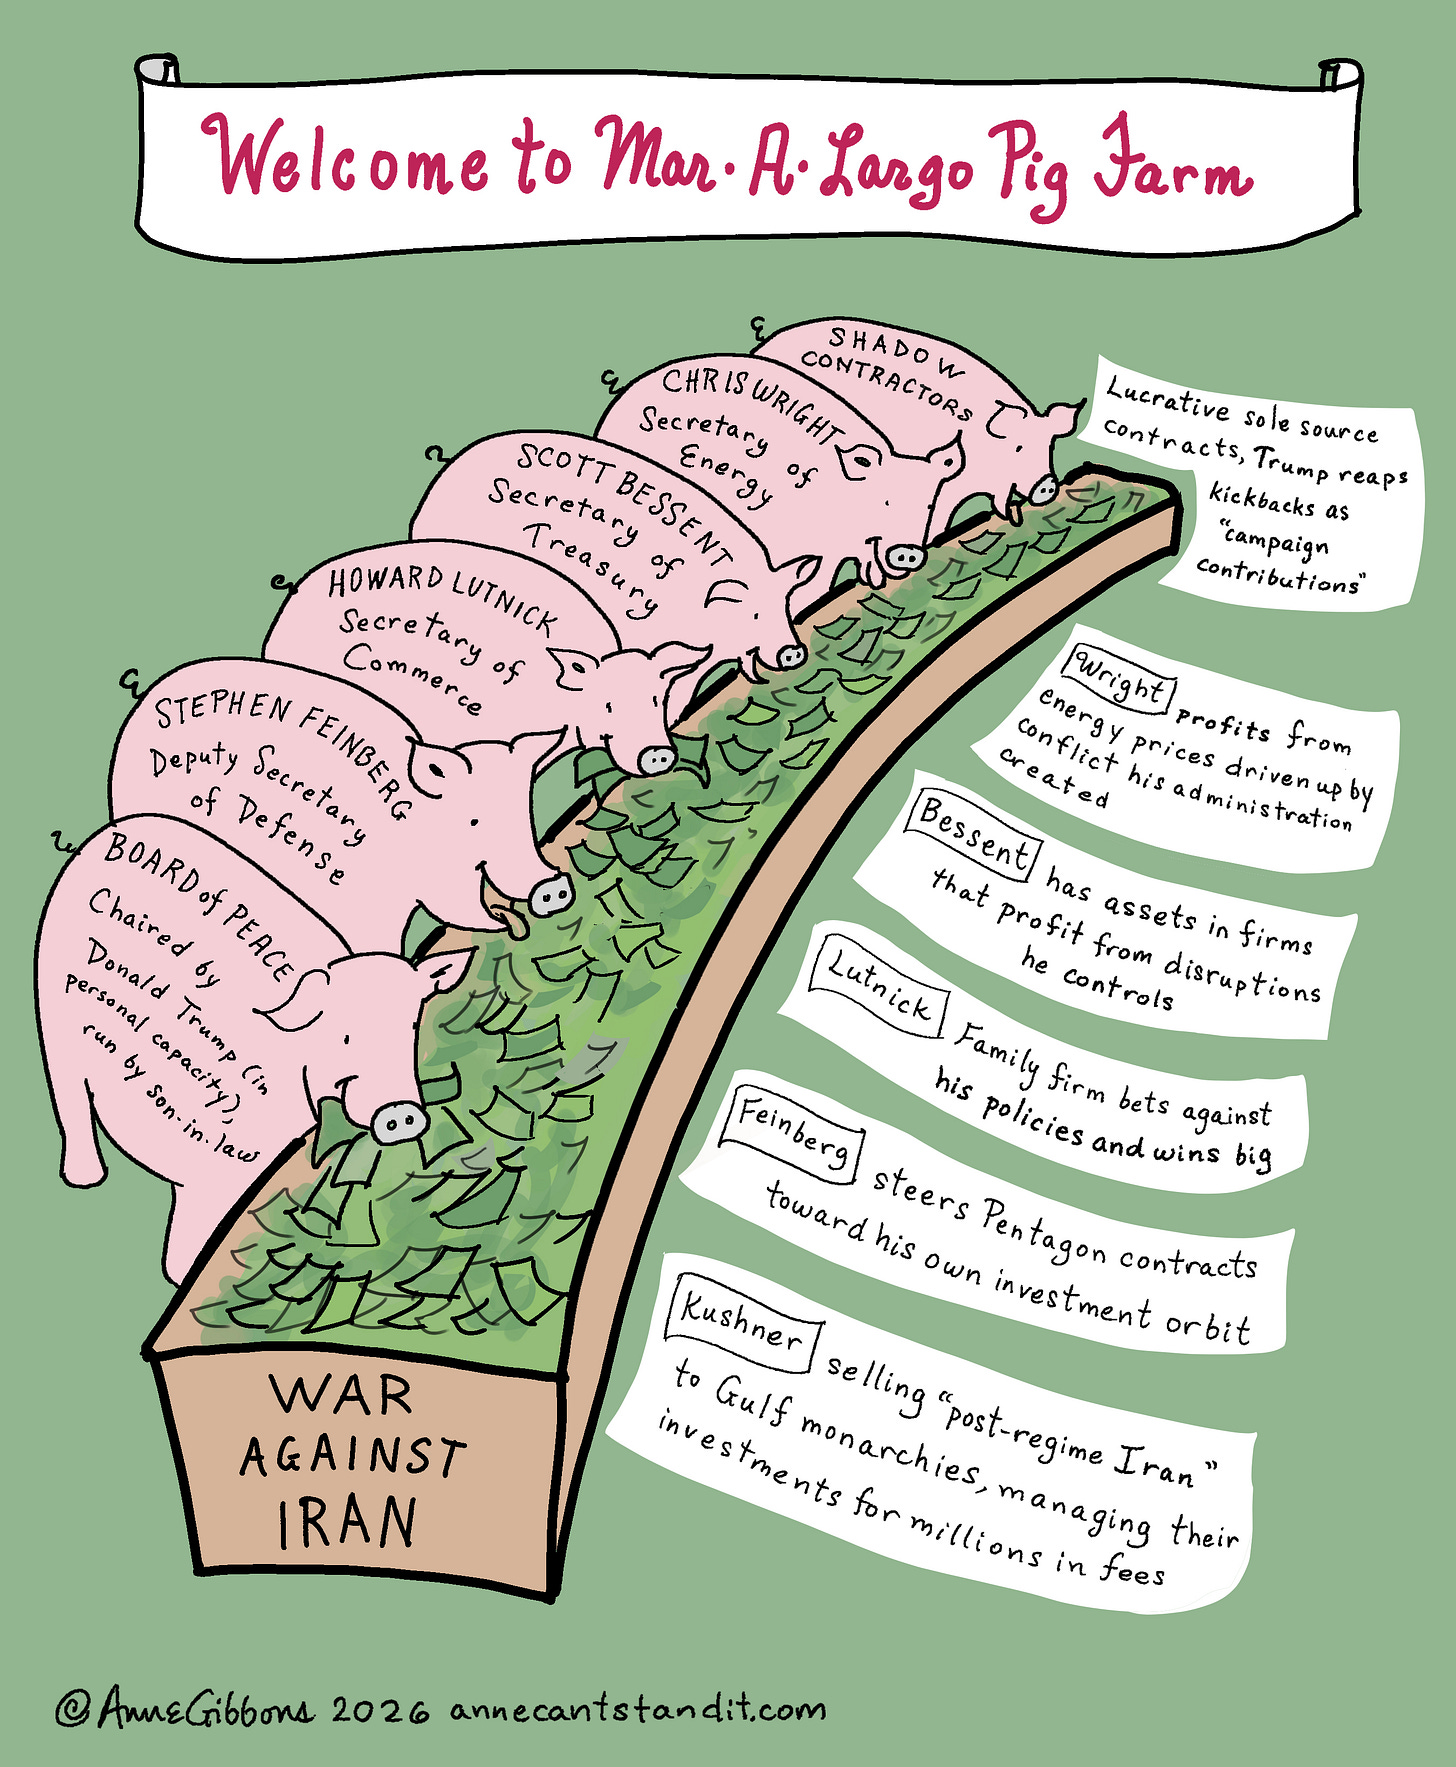 Welcome to Mar·A·Largo Pig Farm
SHADOW
CONTRACTORS
CHRIS WRIGHT
Secretary of
Energy
SCOTT BESSENT
Secretary of
Treasury
HOWARD LUTNICK
Secretary of
Commerce
STEPHEN FEINBERG
Deputy Secretary
of Defense
BOARD of PEACE
Chaired by
Donald Trump (in
personal capacity),
run by son-in-law
Lucrative sole source
contracts, Trump reaps
kickbacks as
"campaign
contributions"
Wright profits from
energy prices driven up by
conflict his administration
created
Bessent has assets in firms
that profit from disruptions
he controls
Lutnick Family firm bets against
his policies and wins big
Feinberg steers Pentagon contracts
toward his own investment orbit
Kushner selling "post-regime Iran"
to Gulf monarchies, managing their
investments for millions in fees
WAR
AGAINST
IRAN
@AnneGibbons 2026 annecantstandit.com